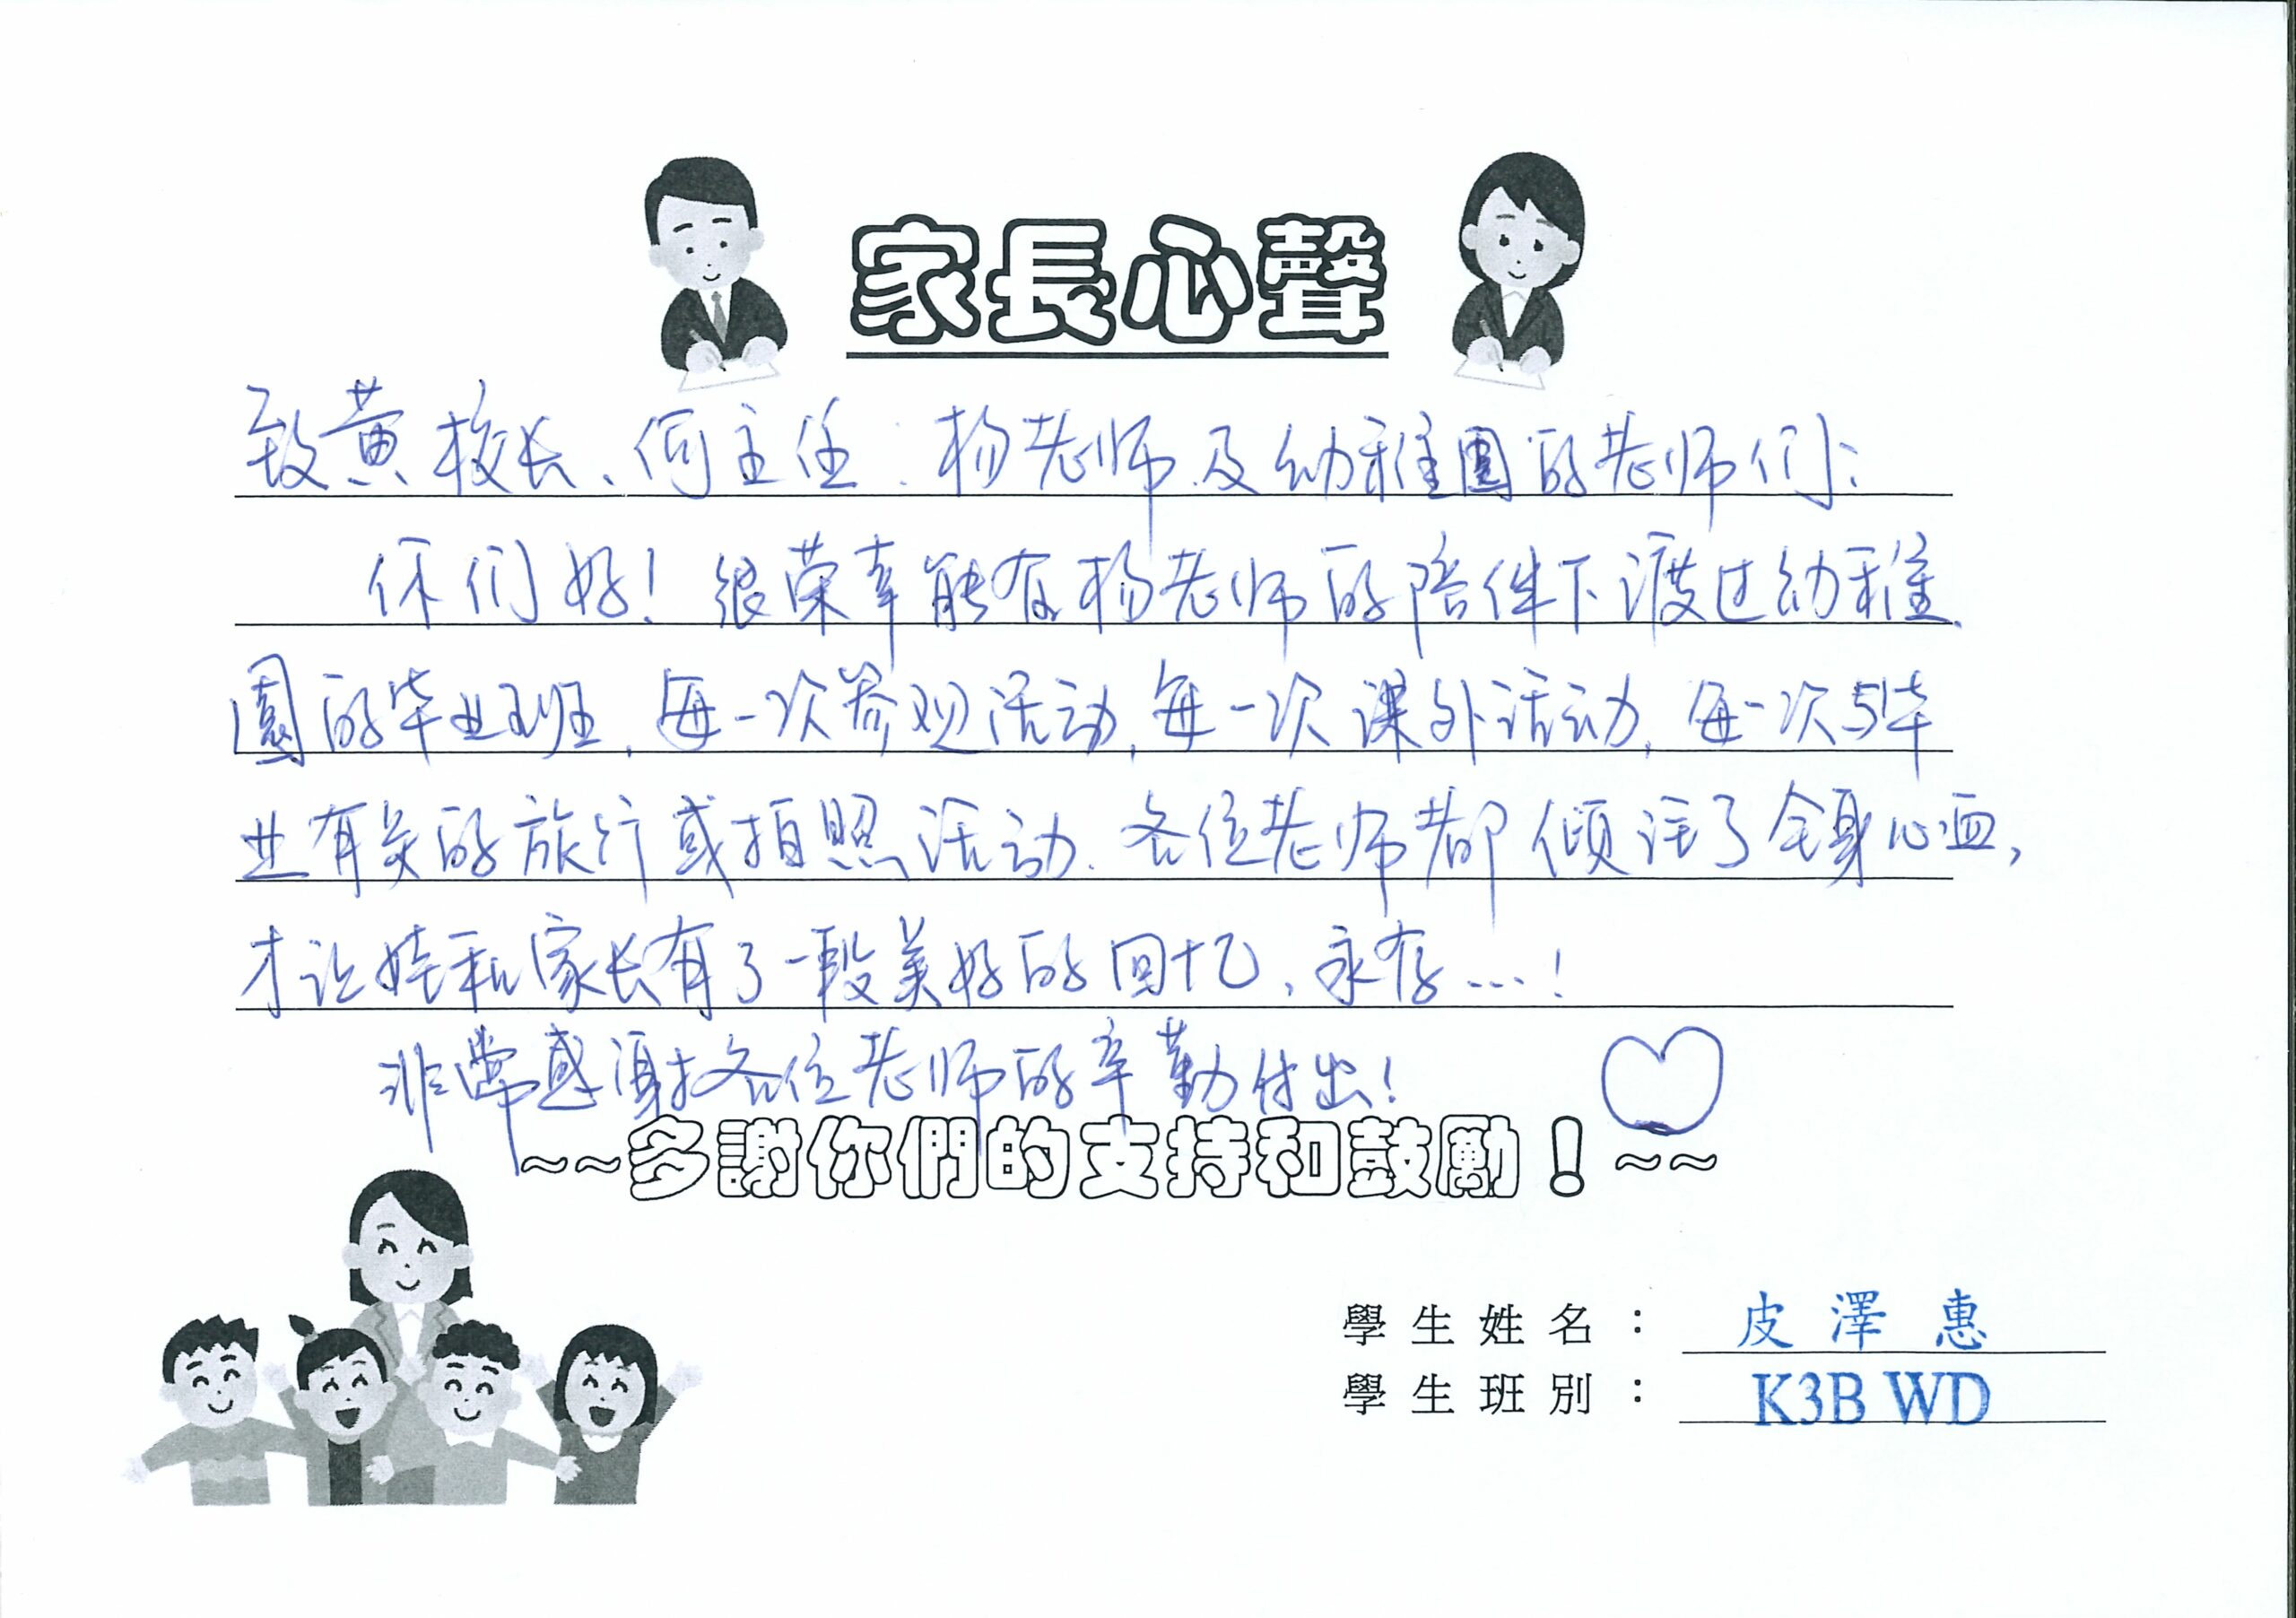 家長心聲
致黄校长、何主任、杨老师及幼稚園的老师们：
你们好！很荣幸能在杨老师的陪伴下渡过幼稚
園的毕业班，每一次参观活动，每一次课外活动，每一次与毕
业有关的旅行或拍照活动，各位老师都倾注了全身心血，
才让娃和家长有了一段美好的回忆，永存…！
非常感謝各位老师的辛勤付出！
~~多謝你們的支持和鼓勵！~~
學生姓名： 皮澤惠
學生班別： K3B WD